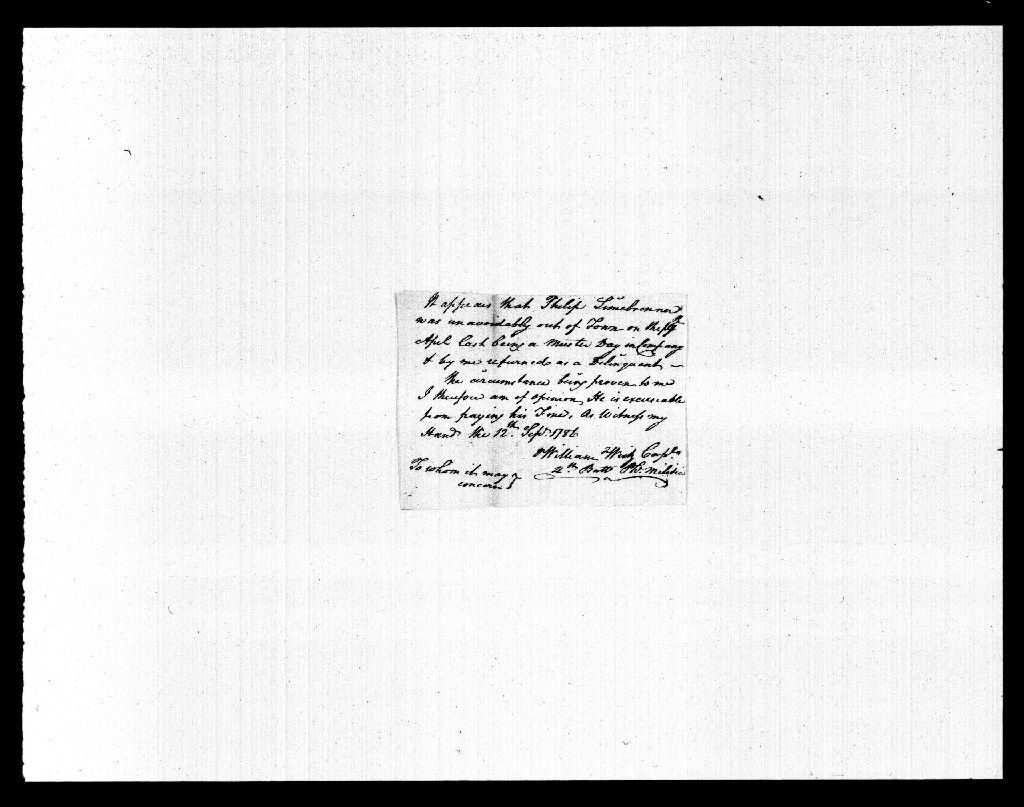 It appears that Philip Limebrenner
was unavoidably out of Town on the
April last being a Muster Day in Company
& by me returned as a Delinquent —
the circumstance being proven to me
I therefore am of opinion He is excuseable
from paying his Fine, As Witness my
Hand the 12th. Sept. 1786
William Capt.
4th Batt Ph. Militia
To whom it may
concern